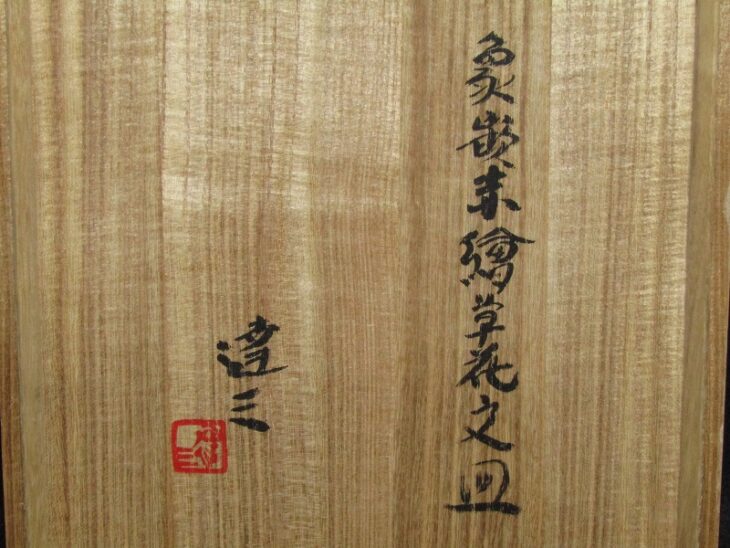 象嵌赤繪草花文皿
達三